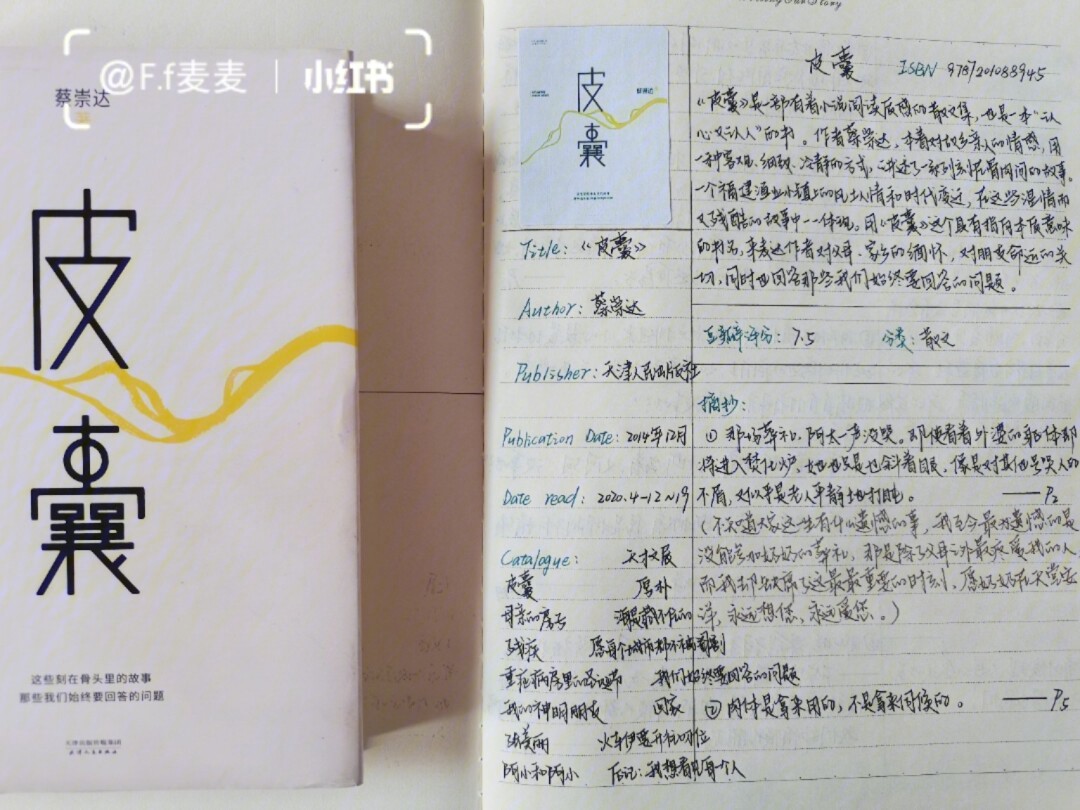 @F.f麦麦 | 小红书
蔡崇达
著
皮
囊
这些刻在骨头里的故事
那些我们始终要回答的问题
天津出版传媒集团
天津人民出版社
皮
囊
蔡崇达
皮囊 ISBN 9787201088945
《皮囊》是一部有着小说阅读质感的散文集，也是一本"认
心又认人"的书。作者蔡崇达，本着对故乡亲人的情感，用
一种客观、细致、冷静的方式，讲述了一系列刻在骨肉间的故事。
一个福建渔业小镇上的风土人情和时代变迁，在这些温情而
又残酷的故事中一一体现。用《皮囊》这个具有指向本质意味
的书名，来表达作者对父母、家乡的缅怀，对朋友命运的关
切，同时也回答那些我们始终要回答的问题。
Title: 《皮囊》
Author: 蔡崇达
Publisher: 天津人民出版社
Publication Date: 2014年12月
Date read: 2020.4-12~19
Catalogue: 天才文展
皮囊 厚朴
母亲的房子 海是藏不住的
残疾 愿每个城市都不被阉割
重症病房里的圣诞节 我们始终要回答的问题
我的神明朋友 回家
张美丽 火车伊要开往叨位
阿小和阿小 后记：我想看见每一个人
豆瓣评分：7.5 分类：散文
摘抄：
① 那场葬礼，阿太一声没哭。即使看着外婆的躯体即
将进入焚化炉，她也只是乜斜着白眼，像是对其他号哭人的
不屑，又似乎是老人平静地打盹。 ——P2
(不知道大家这一生有什么遗憾的事，我至今最为遗憾的是
没能参加好好的葬礼，那是除了父母之外最疼爱我的人
而我却缺席了这最最重要的时刻，愿好好在天堂安
详，永远想您，永远爱您。)
② 肉体是拿来用的，不是拿来伺候的。 ——P5